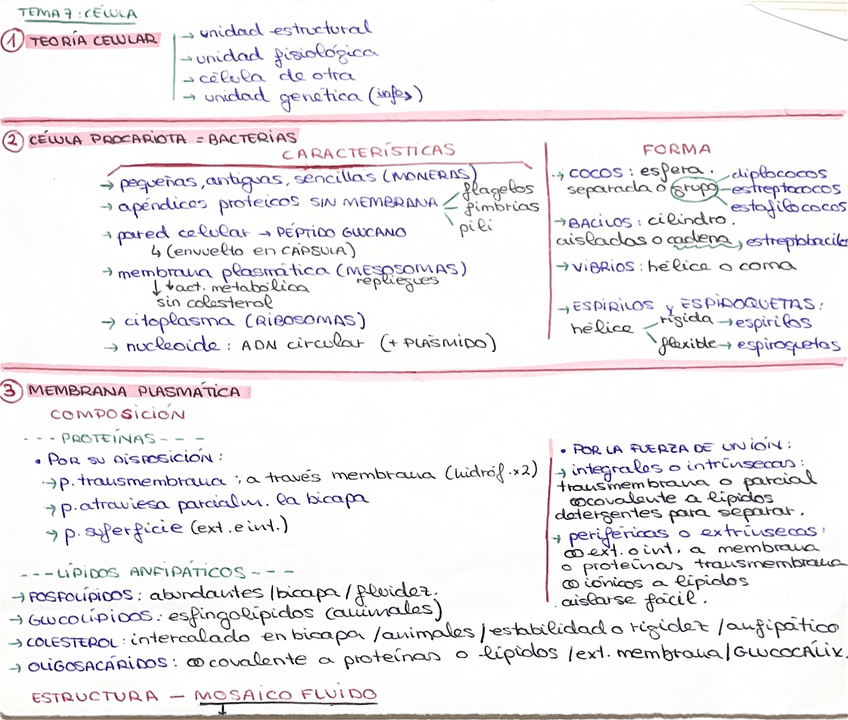 TEMA 7: CÉLULA
① TEORÍA CELULAR
→ unidad estructural
→ unidad fisiológica
→ célula de otra
→ unidad genética (infos)
② CÉLULA PROCARIOTA = BACTERIAS
CARACTERÍSTICAS
→ pequeñas, antiguas, sencillas (MONERAS)
→ apéndices proteicos SIN MEMBRANA
flagelos
fimbrias
pili
→ pared celular → PÉPTIDO GLUCANO
↳ (envuelto en CÁPSULA)
→ membrana plasmática (MESOSOMAS)
repliegues
↓ act. metabólica
sin colesterol
→ citoplasma (RIBOSOMAS)
→ nucleoide: ADN circular (+ PLÁSMIDO)
FORMA
→ COCOS: esfera.
separada o grupo
diplococos
estreptococos
estafilococos
→ BACILOS: cilindro.
aislados o cadena, estreptobacilos
→ VIBRIOS: hélice o coma
→ ESPIRILOS y ESPIROQUETAS:
hélice
rígida → espirilos
flexible → espiroquetas
③ MEMBRANA PLASMÁTICA
COMPOSICIÓN
--- PROTEÍNAS ---
• POR SU DISPOSICIÓN:
→ p. transmembrana: a través membrana (hidróf.x2)
→ p. atraviesa parcialm. la bicapa
→ p. superficie (ext. e int.)
• POR LA FUERZA DE UNIÓN:
→ integrales o intrínsecas:
transmembrana o parcial
∞ covalente a lípidos
detergentes para separar.
→ periféricas o extrínsecas:
∞ ext. o int. a membrana
o proteínas transmembrana
∞ iónicos a lípidos
aislarse fácil.
--- LÍPIDOS ANFIPÁTICOS ---
→ FOSFOLÍPIDOS: abundantes / bicapa / fluidez.
→ GLUCOLÍPIDOS: esfingolípidos (animales)
→ COLESTEROL: intercalado en bicapa / animales / estabilidad o rigidez / anfipático
→ OLIGOSACÁRIDOS: ∞ covalente a proteínas o lípidos / ext. membrana / GLUCOCÁLIX.
ESTRUCTURA — MOSAICO FLUIDO
↓